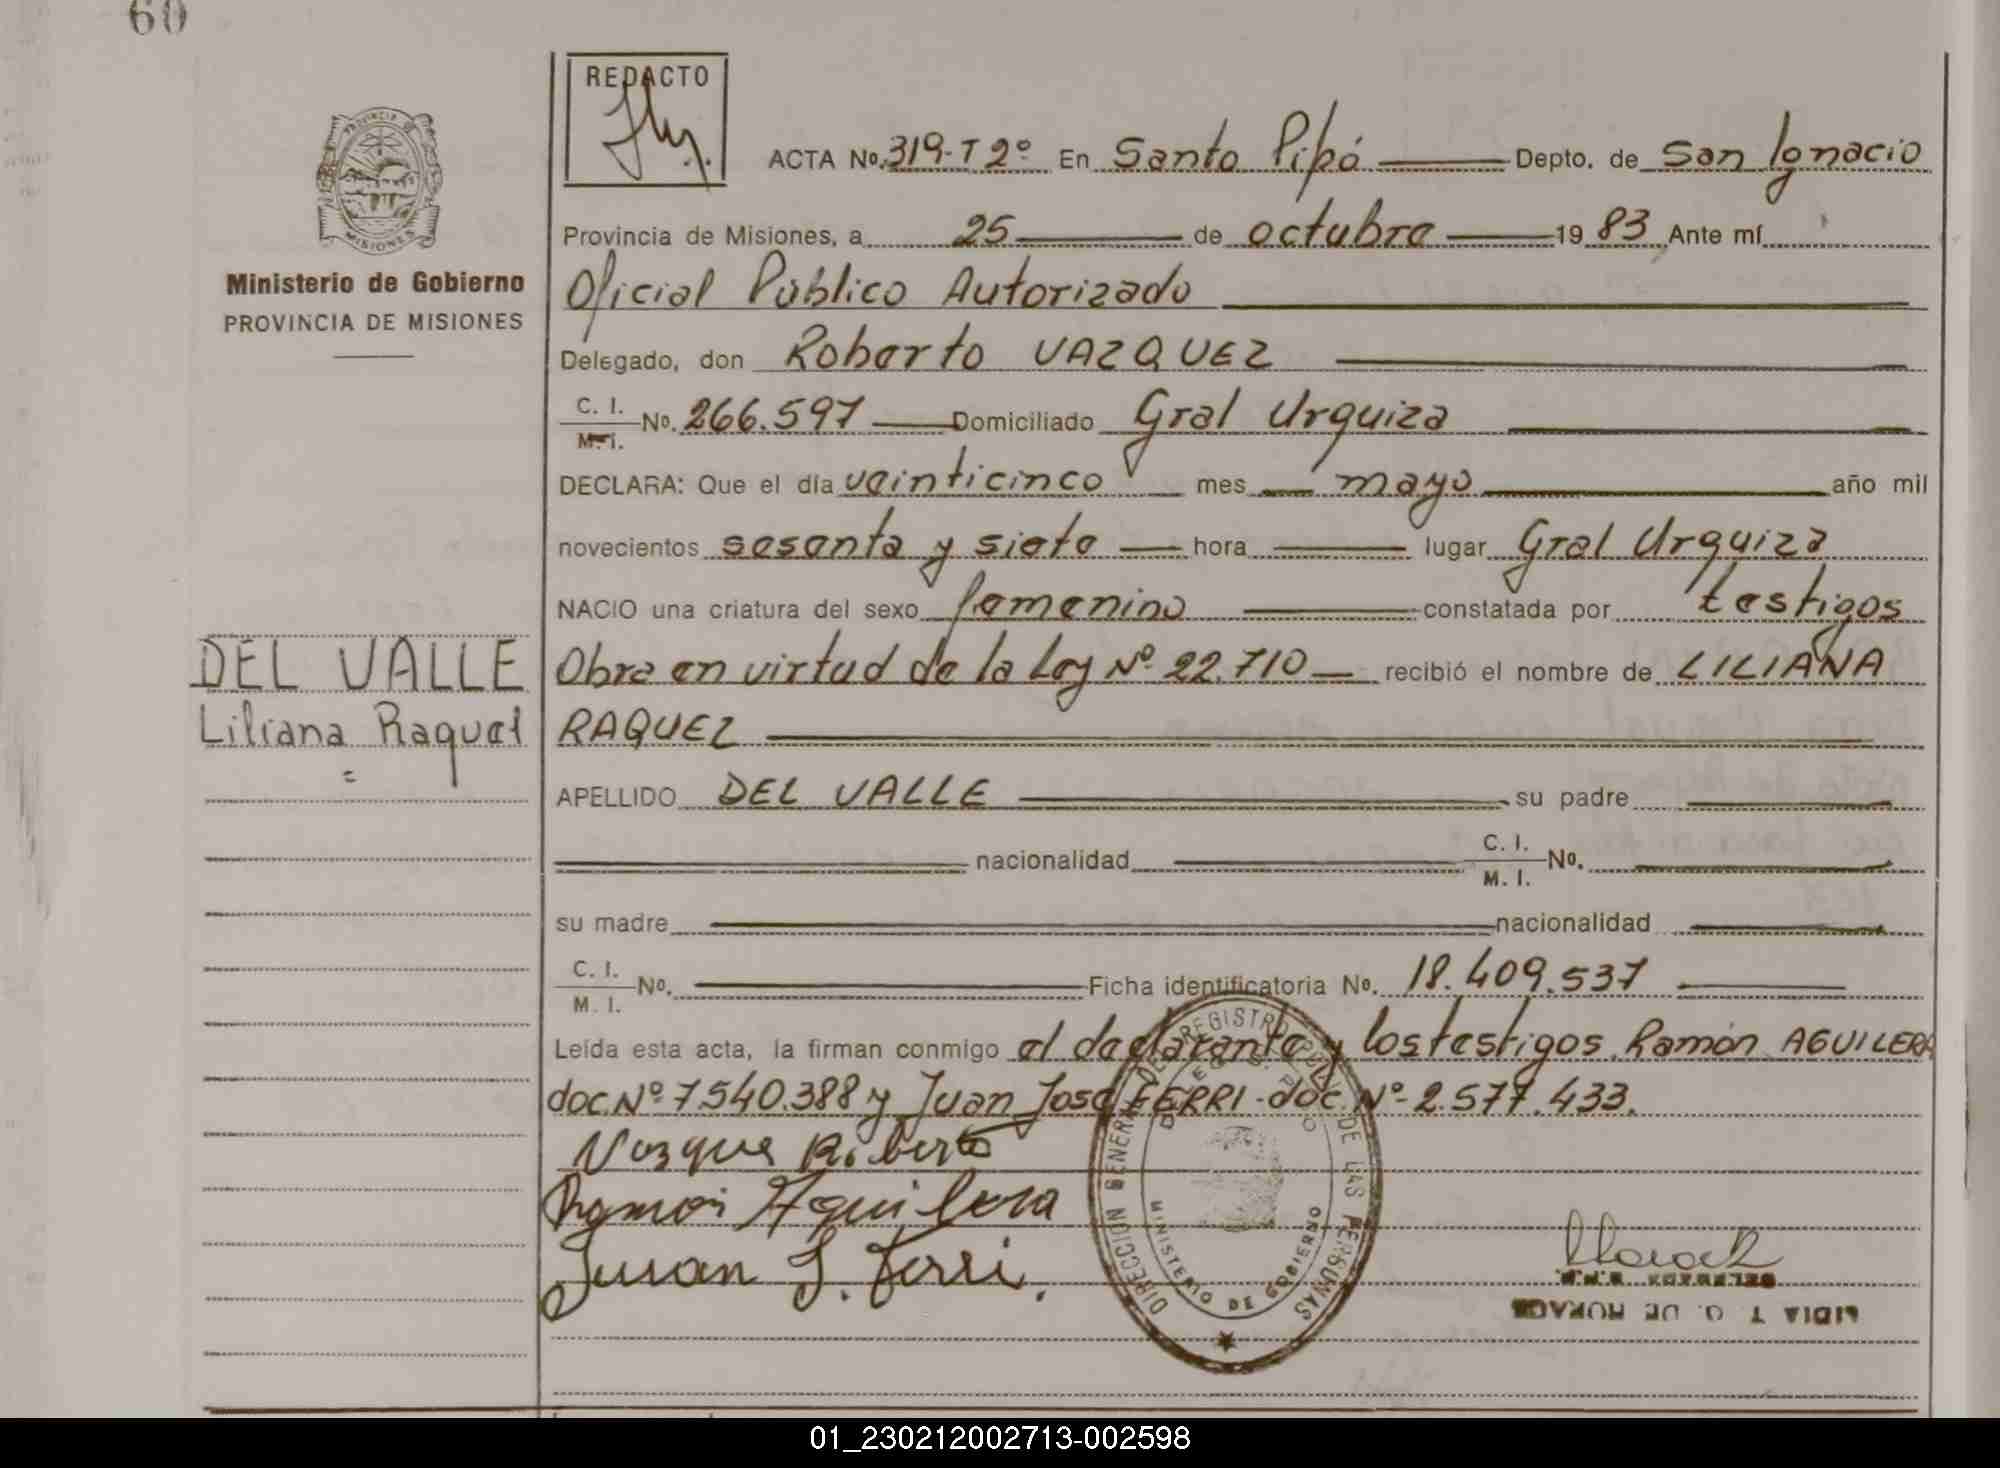 60
REDACTO
ACTA No. 319-T2º En Santo Pipó Depto. de San Ignacio
Provincia de Misiones, a 25 de octubre 19 83 Ante mí
Oficial Público Autorizado
Delegado, don Roberto VAZQUEZ
C. I.
M. I.
No. 266.597 Domiciliado Gral Urquiza
DECLARA: Que el día veinticinco mes mayo año mil
novecientos sesenta y siete hora lugar Gral Urquiza
NACIO una criatura del sexo femenino constatada por testigos
Obra en virtud de la Ley Nº 22.710 recibió el nombre de LILIANA
RAQUEL
APELLIDO DEL VALLE su padre
nacionalidad C. I. M. I. No.
su madre nacionalidad
C. I. M. I. No. Ficha identificatoria No. 18.409.537
Leída esta acta, la firman conmigo el declarante y los testigos Ramón AGUILERA
doc. Nº 7.540.388 y Juan José FERRI - doc. Nº 2.577.433.
Ramon Aguilera
Juan J. Ferri.
PROVINCIA DE
MISIONES
Ministerio de Gobierno
PROVINCIA DE MISIONES
DEL VALLE
Liliana Raquel
DIRECCION GENERAL DE REGISTRO DE LAS PERSONAS
MINISTERIO DE GOBIERNO
LIDIA T. G. DE HORACH
01_230212002713-002598